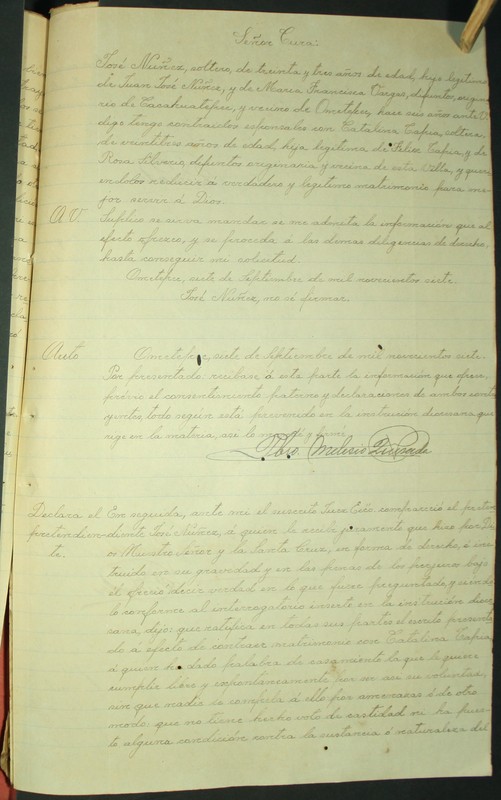 Señor Cura:
José Nuñez, soltero, de treinta y tres años de edad, hijo legitimo
de Juan José Nuñez, y de Maria Francisca Vargas, difuntos, origina
rio de Cacahuatepec, y vecino de Ometepec, hace seis años ante U.
digo: tengo contraidos esponsales con Catalina Tapia, soltera,
de veintitres años de edad, hija legitima de Felix Tapia, y de
Rosa Silverio, difuntos originaria y vecina de esta Villa, y querien
endolos reducir á verdadero y legitimo matrimonio para me-
jor servir á Dios.
A U. Suplico se sirva mandar se me admita la información que al
efecto ofrezco, y se proceda á las demas diligencias de derecho,
hasta conseguir mi solicitud.
Ometepec, siete de Septiembre de mil novecientos siete.
José Nuñez, no sé firmar.
Auto Ometepec, siete de Septiembre de mil novecientos siete.
Por presentado: recibase á esta parte la información que ofrece,
prévio el consentimiento paterno y declaraciones de ambos contra
yentes, todo según está prevenido en la instrucción diocesana que
rige en la materia, asi lo
Pbro. Melesio
Declara el En seguida, ante mi el suscrito Juez Eco. compareció el preten-
pretendien- diente José Nuñez, á quien le recibí juramento que hizo por Di-
te. os Nuestro Señor y la Santa Cruz, en forma de derecho, é ins-
truido en su gravedad y en las penas de los perjuros bajo
él ofreció decir verdad en lo que fuere preguntado, y siendo-
lo conforme al interrogatorio inserto en la instrucción dioce
sana, dijo: que ratifica en todas sus partes el escrito presenta
do á efecto de contraer matrimonio con Catalina Tapia,
á quien ha dado palabra de casamiento la que le quiere
cumplir libre y expontaneamente por ser asi su voluntad,
sin que nadie lo compela á ello por amenazas ó de otro
modo: que no tiene hecho voto de castidad ni ha pues-
to alguna condición contra la sustancia ó naturaleza del